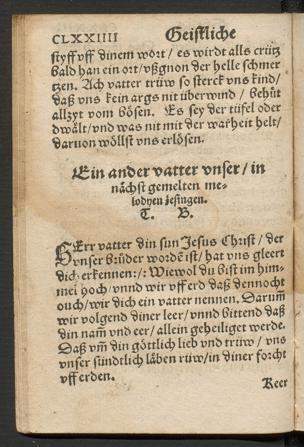 CLXXIIII Geistliche
styff vff dinem wort / es wirdt alls crütz
bald han ein ort / vßgnon der helle schmer
tzen. Ach vatter trüw so sterck vns kind /
daß vns kein args nit überwind / behüt
allzyt vom bösen. Es sey der tüfel oder
dwält / vnd was nit mit der warheit helt /
daruon wöllst vns erlösen.
Ein ander vatter vnser / in
nächst gemelten me-
lodyen zesingen.
T. B.
HErr vatter din sun Jesus Christ / der
vnser brüder wordē ist / hat vns gleert
dich erkennen :/: Wiewol du bist im him-
mel hoch / vnnd wir vff erd daß dennocht
ouch / wir dich ein vatter nennen. Darum̄
wir volgend diner leer / vnnd bittend daß
din nam̄ vnd eer / allein geheiliget werde.
Daß vm̄ din göttlich lieb vnd trüw / vns
vnser sündtlich läben rüw / in diner forcht
vff erden.
Reer